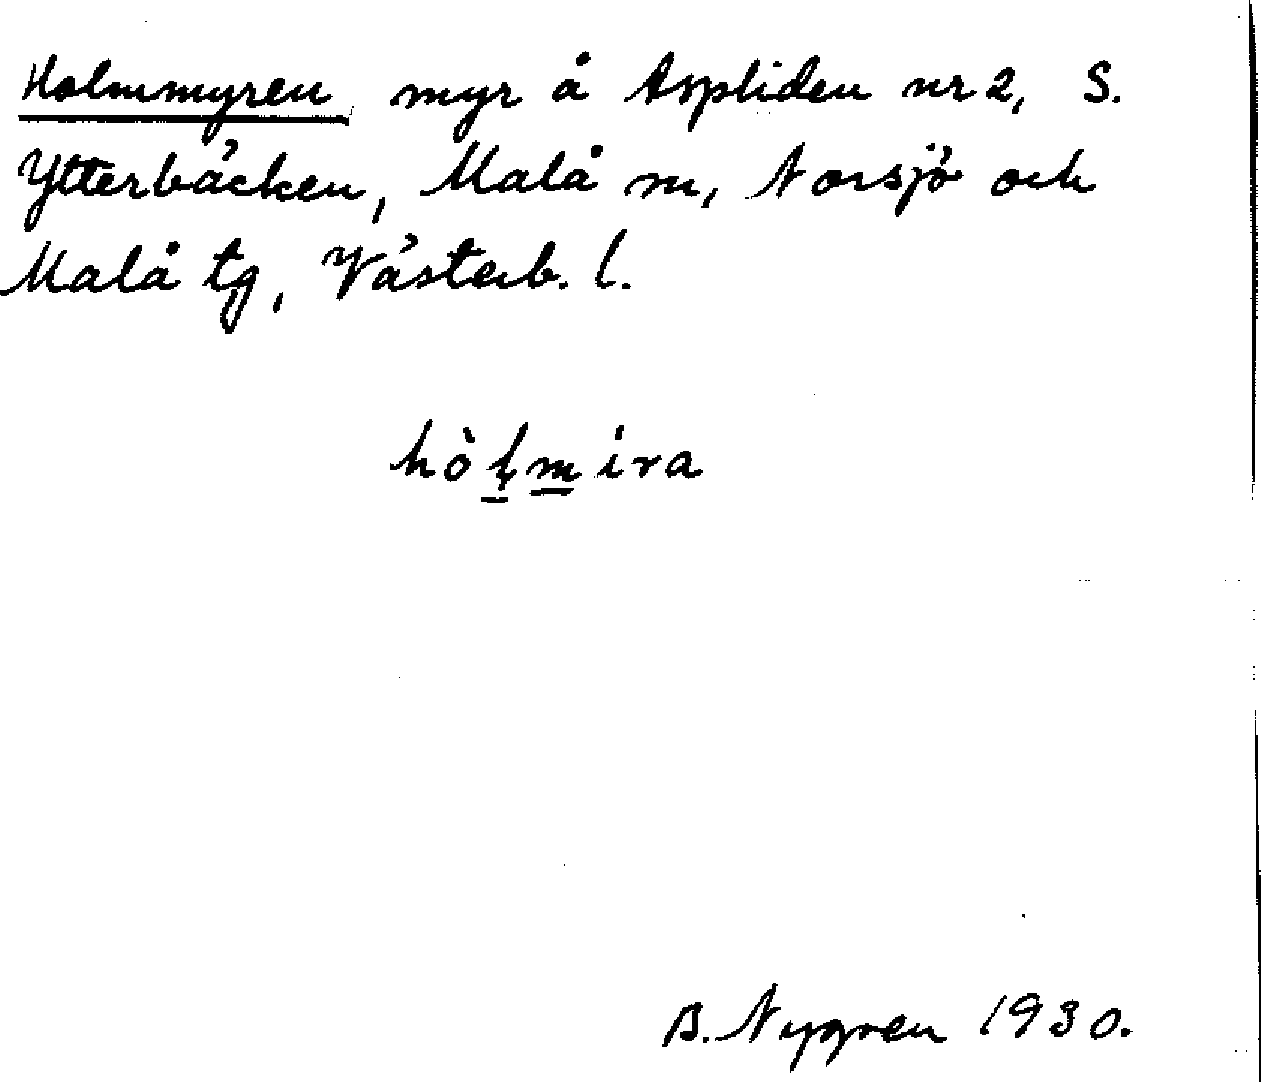 Holmmyren myr å Aspliden nr 2, S.
Ytterbäcken, Malå sn, Norsjö och
Malå tg, Västerb. l.
hòłmira
B. Nygren 1930.